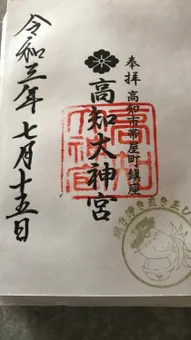 奉拝 高知市帯屋町鎮座
高知大神宮
高知大神宮
令和三年七月十五日